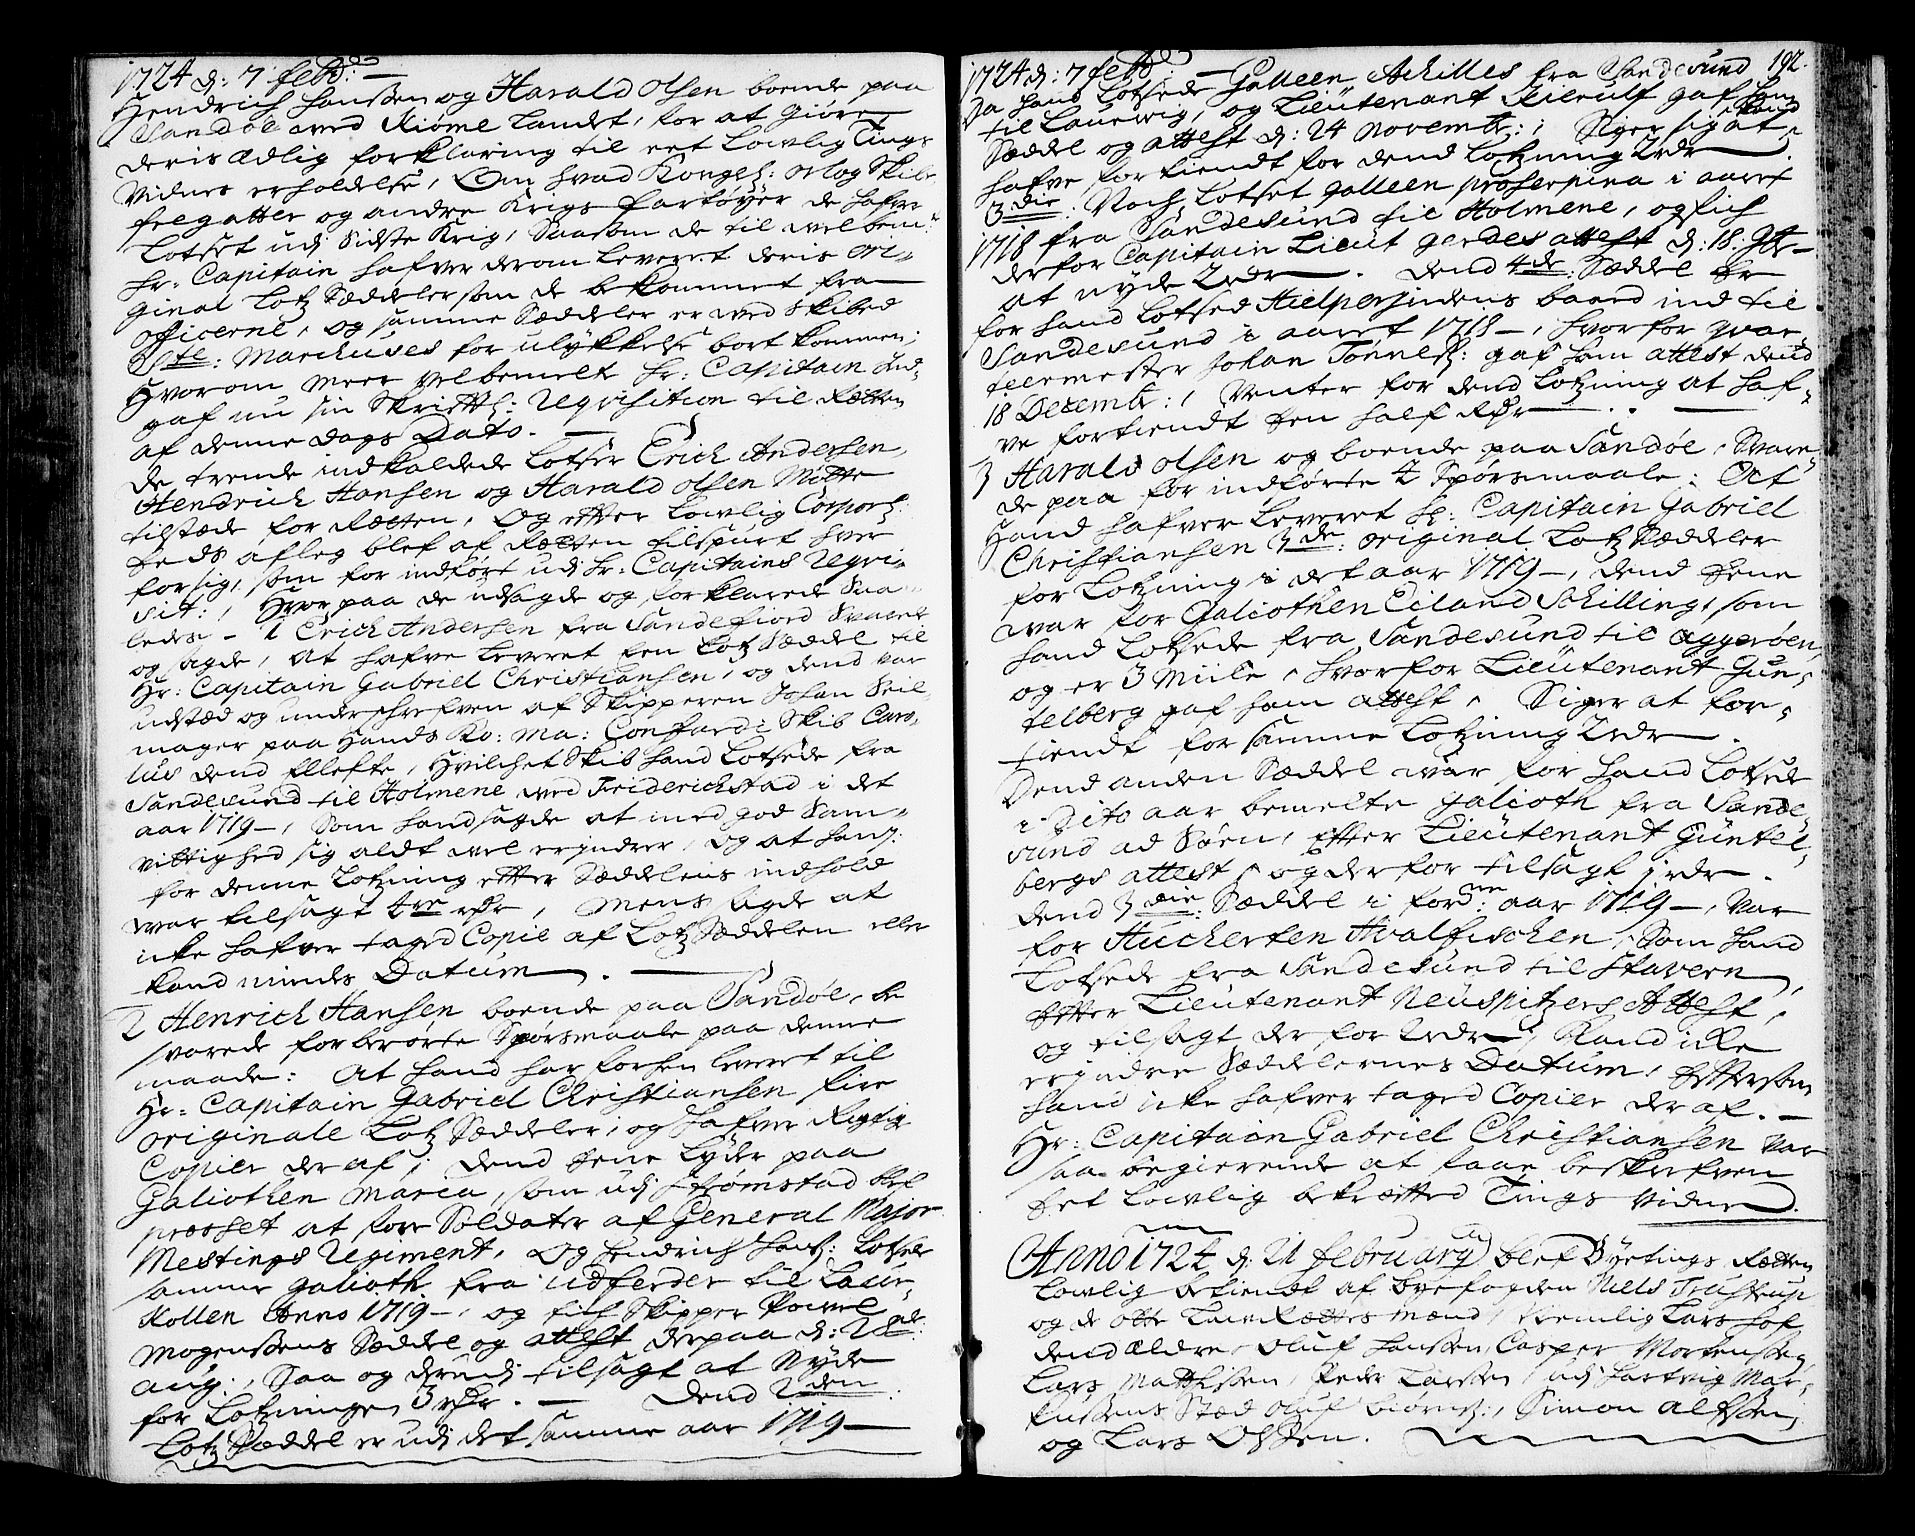 1724 d: 7 febr:
Hendrich Hanssen og Harald Olsen boende paa
Sandøe ved Kiøme Landet, for at giøre
deris ædlig forklaring til eet Lovlig Tings
Vidnes erholdelse, Om hvad Kongel: Orlog Skibe
fregatter og andre Krigs fartøyer de hafve
Lotset udi Sidste Krig, Saasom de til welbem:te
Hr: Capitain hafver derom leveret deris Ori-
ginal Lotz Sæddeler som de bekommet fra
officerne, og samme Sæddeler er ved Skibed
Ste: Marchuses for ulykkelse bort kommen;
Hvorom meer Velbemelte Hr: Capitain Ind-
gaf nu sin Skriftl: Reqvisition til Retten
af denne Dags Dato.
De trende indkaldede Lotser Erich Andersen,
Hendrich Hansen og Harald Olsen Møtte
tilstæde for Retten, Og efter Lovlig Corporl:
Eeds aflæg blef af Retten tilspurt hver
for sig, som for indført udi Hr: Capitains Reqvi-
sit:, Hvor paa de udsagde og forklarede Saa-
ledes - 1 Erich Andersen fra Sandefiord Svaret
og sagde, at hafve leveret een Lotz Sæddel til
Hr: Capitain Gabriel Christiansen, og dend var
udstæd og underschrefven af Skipperen Johan Seil-
mager paa Hands Ko: Ma: Conffardi Skib Caro-
lus dend Ellefte, Hvilchet Skib hand Lotsede fra
Sandesund til Holmene ved Friderichstad i det
aar 1719-, Som hand sagde at med god Sam-
vittighed sig aldt vel erindrer, og at hans
for denne Lotzning efter Sæddelens indhold
war tilsagt 4re rdr, Mens sagde at
icke hafver taged Copie af Lotz Sæddelen eller
kand mindes Datum.
2 Henrich Hansen boende paa Sandøe, be
svarede forberørte Spørsmaale paa denne
maade: At hand har forhen leveret til
Hr: Capitain Gabriel Christiansen fire
originale Lotz Sæddeler, og hafver Rigtig
Copier der af; Dend Eene Lyder paa
Galiothen Maria, som udi Strømstad blef
presset at føre Soldater af General Major
Mestings Regiment, Og Hendrich Hans: Lotsede
samme galioth fra Udferder til Laur-
Kollen Anno 1719-, og fich Skipper Powel
Mogenssens Sæddel og attest derpaa d: 2de:
aug:, Saa og derudi tilsagt at Nyde
for Lotzningen 3 rdr. - Dend 2den
Lotz Sæddel er udi det samme aar 1719-
1724 d: 7 febr: - Galleen Achilles fra Sandesund 192.
Da hand Lotsede
til Laurwig, og Lieutenant Kierulf gaf ham
Sæddel og attest d: 24 Novembr:; Siger sig at
hafve fortiendt for dend Lotzning 2 rdr.
3die: Noch Lotset galleen proserpina i aaret
1718 fra Sandesund til Holmene, og fich
derfor Capitain Lieut Gerdes attest d: 18: 9br-
at nyde 2 rdr. Dend 4de: Sæddel Er
for hand Lotsed Hielpersindens baard ind til
Sandesund i aaret 1718-, hvorfor qvar
teermester Johan Tønnes: gaf ham attest dend
18 Decembr:, Venter for dend Lotzning at haf-
ve fortiendt Een half Rdr.
3 Harald Olsen og boende paa Sandøe, Svare-
de paa for indførte 2 Spørsmaale: At
Hand hafver leveret Hr: Capitain Gabriel
Christiansen 3de: original Lotz Sæddeler
for Lotzning i det aar 1719-, Dend Eene
war for Galiothen Eiland Schilling, som
hand Lotsede fra Sandesund til Aggerøen,
og er 3 Miile, hvorfor Lieutenant Gun-
telberg gaf ham attest, Siger at for-
tiendt for samme Lotzning 2 rdr.
Dend anden Sæddel war for hand Lotsede
i Dito aar bemelte galioth fra Sande-
sund ad Søen, Efter Lieutenant Güntel-
bergs attest, og derfor tilsagt 1 rdr.
Dend 3die: Sæddel i for:ne aar 1719-, Var
for Huckerten Hvalfischen, Som hand
Lotsede fra Sandesund til Stavern
Efter Lieutenant Neuspitzers Attest,
og tilsagt der for 2 rdr, Kand icke
erindre Sæddelernes Datum, Eftersom
hand icke hafver taged Copier der af.-
Hr: Capitain Gabriel Christiansen var
saa begierende at faae beskrefven
Eet Lovlig bekræfted Tings Vidne.
Anno 1724 d: 21 february blef Byetings Retten
Lovlig betiendt af byefogden Niels Trustrup
og de otte Laur Rettes Mænd, Nemlig Lars Hof
dend ældre, Oluf Hanssen, Casper Mortenssen,
Lars Matthissen, Peder Larssen, udi Hartvig Mar-
kussens Stæd Oluf Biørns:, Simon Alfssen,
og Lars Olssen.